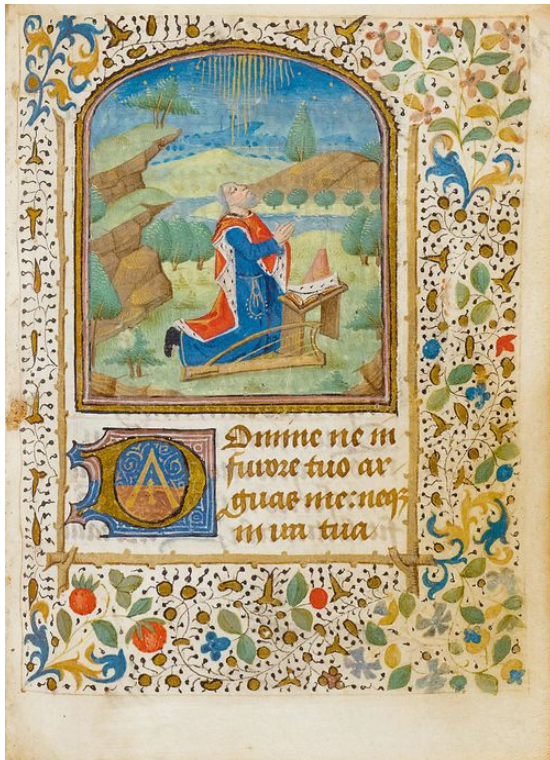 D Omine ne in
furore tuo ar
guas me: neqꝫ
in ira tua